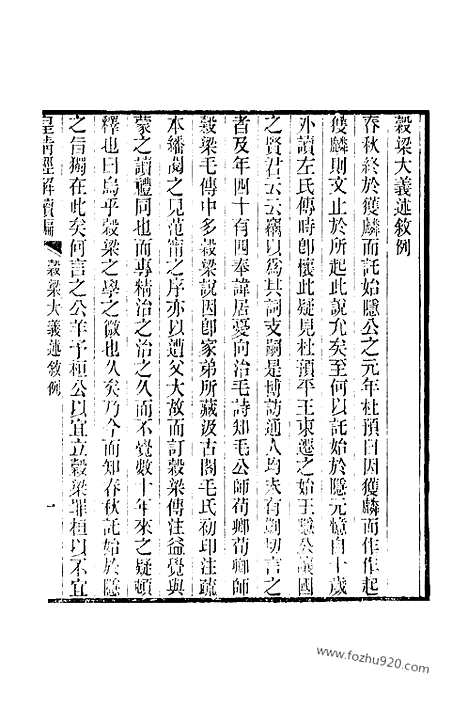 穀梁大義述敘例
春秋終於獲麟而託始隱公之元年杜預曰因獲麟而作作起
獲麟則文止於所起此說允矣至何以託始於隱元憶自十歲
外讀左氏傳時卽懷此疑見杜預平王東遷之始王隱公讓國
之賢君云云竊以爲其詞支嗣是博訪通人均未有剴切言之
者及年四十有四奉諱居憂向治毛詩知毛公師荀卿荀卿師
穀梁毛傳中多穀梁說因卽家弟所藏汲古閣毛氏初印注疏
本繙閱之見范甯之序亦以遭父大故而訂穀梁傳注益覺與
蒙之讀禮同也而專精治之治之久而不覺數十年來之疑頓
釋也曰烏乎穀梁之學之微也久矣乃今而知春秋託始於隱
之旨獨在此矣何言之公羊予桓公以宜立穀梁罪桓以不宜
皇清經解續編
穀梁大義述敘例
一
www.fozhu920.com